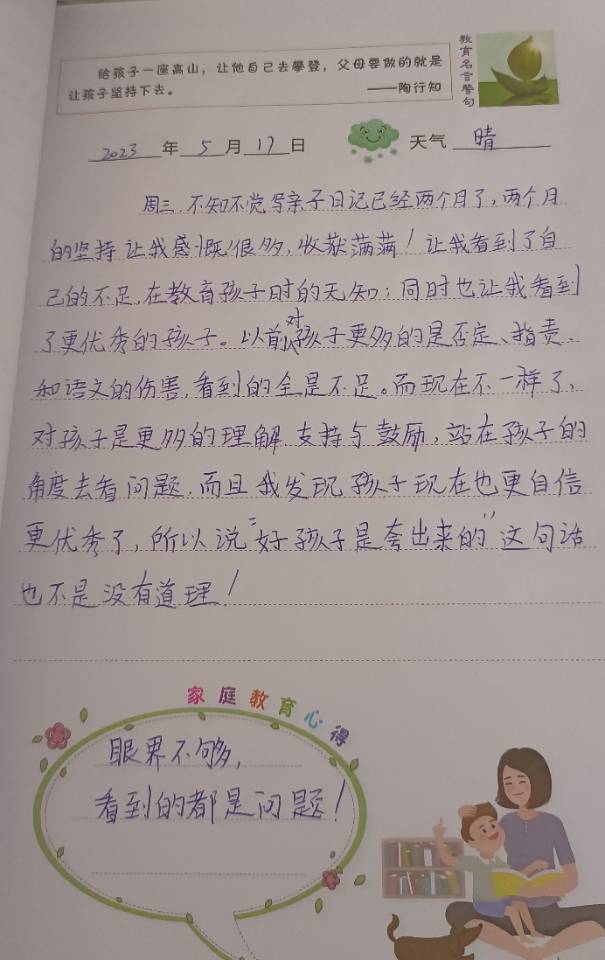 给孩子一座高山，让他自己去攀登，父母要做的就是
让孩子坚持下去。 ——陶行知
教育名言警句
2023年5月17日 天气 晴
周三.不知不觉写亲子日记已经两个月了,两个月
的坚持让我感慨很多,收获满满!让我看到了自
己的不足,在教育孩子时的无知;同时也让我看到
了更优秀的孩子。以前对孩子更多的是否定、指责、
和语文的伤害,看到的全是不足。而现在不一样了,
对孩子是更多的理解.支持与鼓励,站在孩子的
角度去看问题,而且我发现孩子现在也更自信
更优秀了,所以说"好孩子是夸出来的"这句话
也不是没有道理!
家庭教育心得
眼界不够,
看到的都是问题!